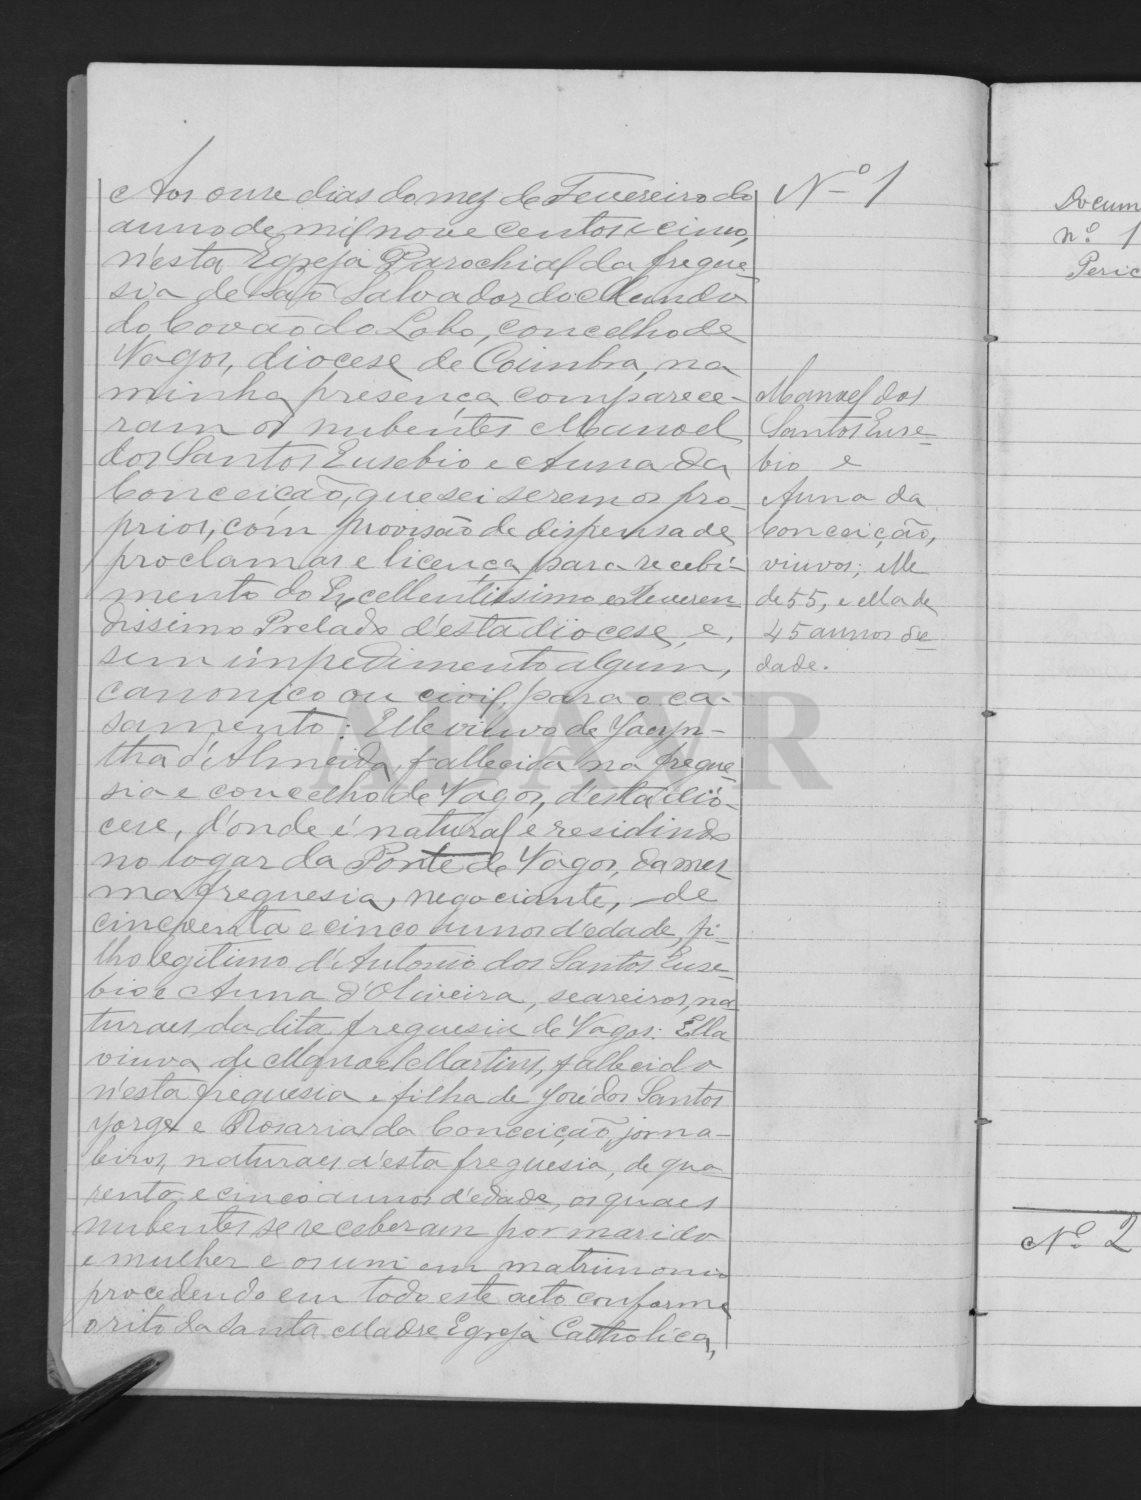 Nº 1
Aos onse dias do mez de Fevereiro do
anno de mil nove centos e cinco,
n'esta Egreja Parochial da fregue-
sia de São Salvador do Mundo
do Covão do Lobo, concelho de
Vagos, diocese de Coimbra, na
minha presença comparece-
ram os nubentes Manoel
dos Santos Eusebio e Anna da
Conceição, que sei serem os pro-
prios, com provisão de dispensa de
proclamas e licença para recebi-
mento do Excellentissimo e Reveren
dissimo Prelado d'esta diocese, e,
sem impedimento algum,
canonico ou civil, para o ca-
samento: Elle viuvo de Jacyn-
tha d'Almeida, fallecida na fregue-
sia e concelho de Vagos, d'esta dio-
cese, d'onde é natural e residindo
no logar da Ponte de Vagos, da mes
ma freguesia, negociante, de
cincoenta e cinco annos d'edade, fi-
lho legitimo d'Antonio dos Santos Euse-
bio e Anna d'Oliveira, seareiros, na
turaes da dita freguesia de Vagos: Ella
viuva de Manoel Martins, fallecido
n'esta freguesia e filha de José dos Santos
Jorge e Rosaria da Conceição, jorna-
leiros, naturaes d'esta freguesia, de qua
renta e cinco annos d'edade, os quaes
nubentes se receberam por marido
e mulher e os uni em matrimonio
procedendo em todo este acto conforme
o rito da Santa Madre Egreja Catholica,
Manoel dos
Santos Euse-
bio e
Anna da
Conceição,
viuvos; elle
de 55, e ella de
45 annos de
dade.
Docum
nº 1
Nº 2
ADAVR